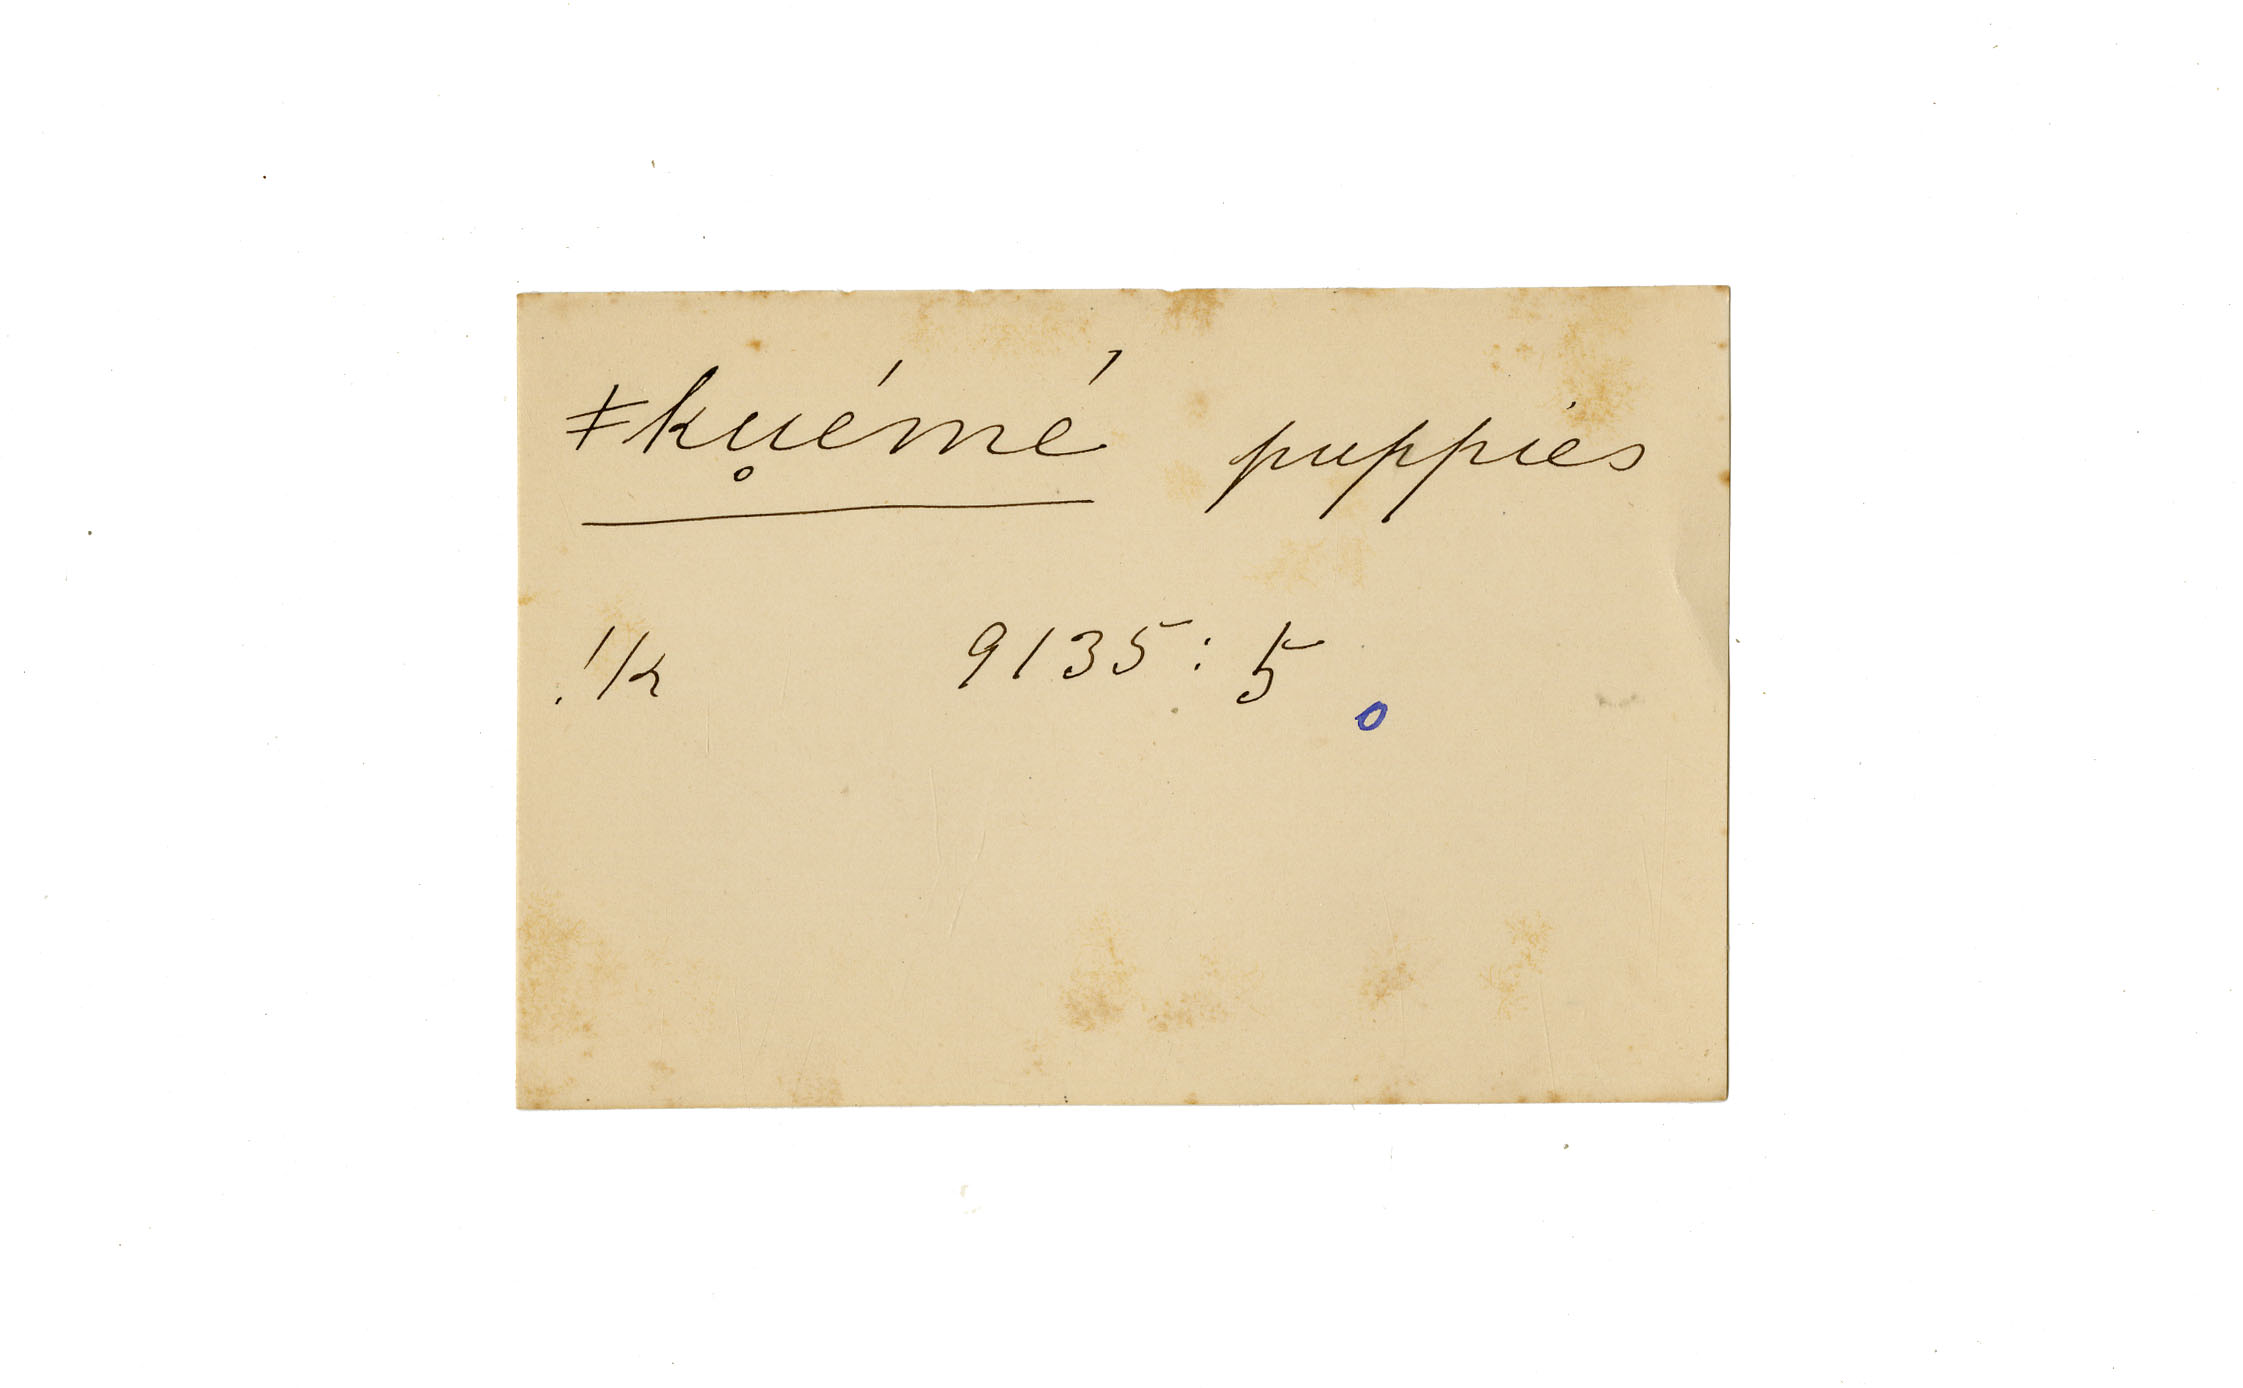 ǂku̥émé puppies
!k 9135 : 5 o